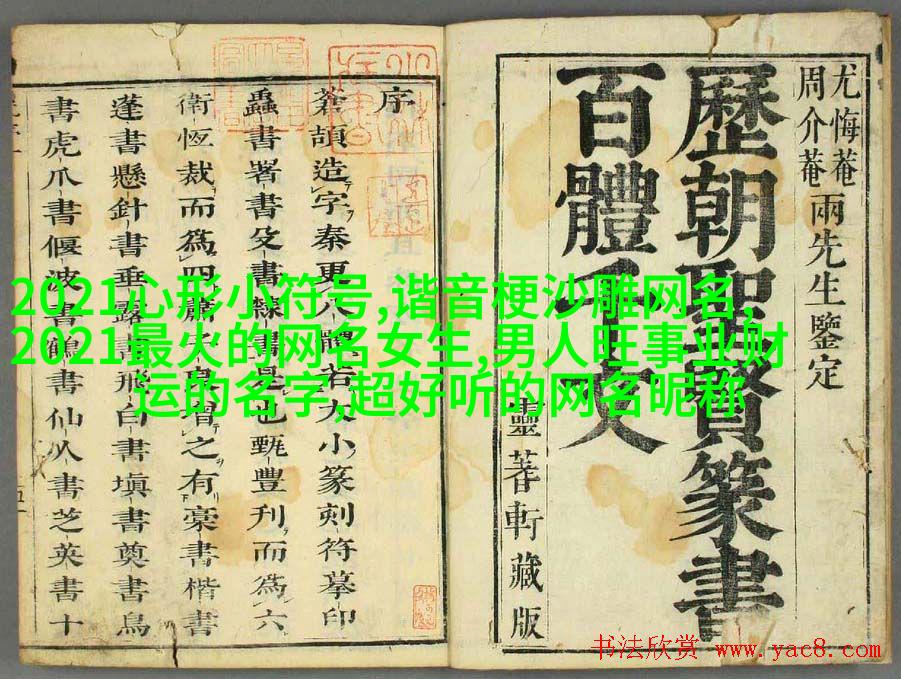 尤悔菴
周介菴
兩先生鑒定
歷朝聖賢篆書
百體千文
靈蓍軒藏版
序
蒼頡造字秦更八體若大小篆刻符摹印
蟲書署書殳書隸書是也甄豐刋而爲六
衛恆裁而爲四肅之有槀書楷書
蓬書懸針書垂露書飛白書塡書奠書鳥
書虎爪書偃波書鶴書仙人書芝英書十
2021心形小符号,谐音梗沙雕网名,
2021最火的网名女生,男人旺事业财
运的名字,超好听的网名昵称
书法欣赏 www.yac8.com